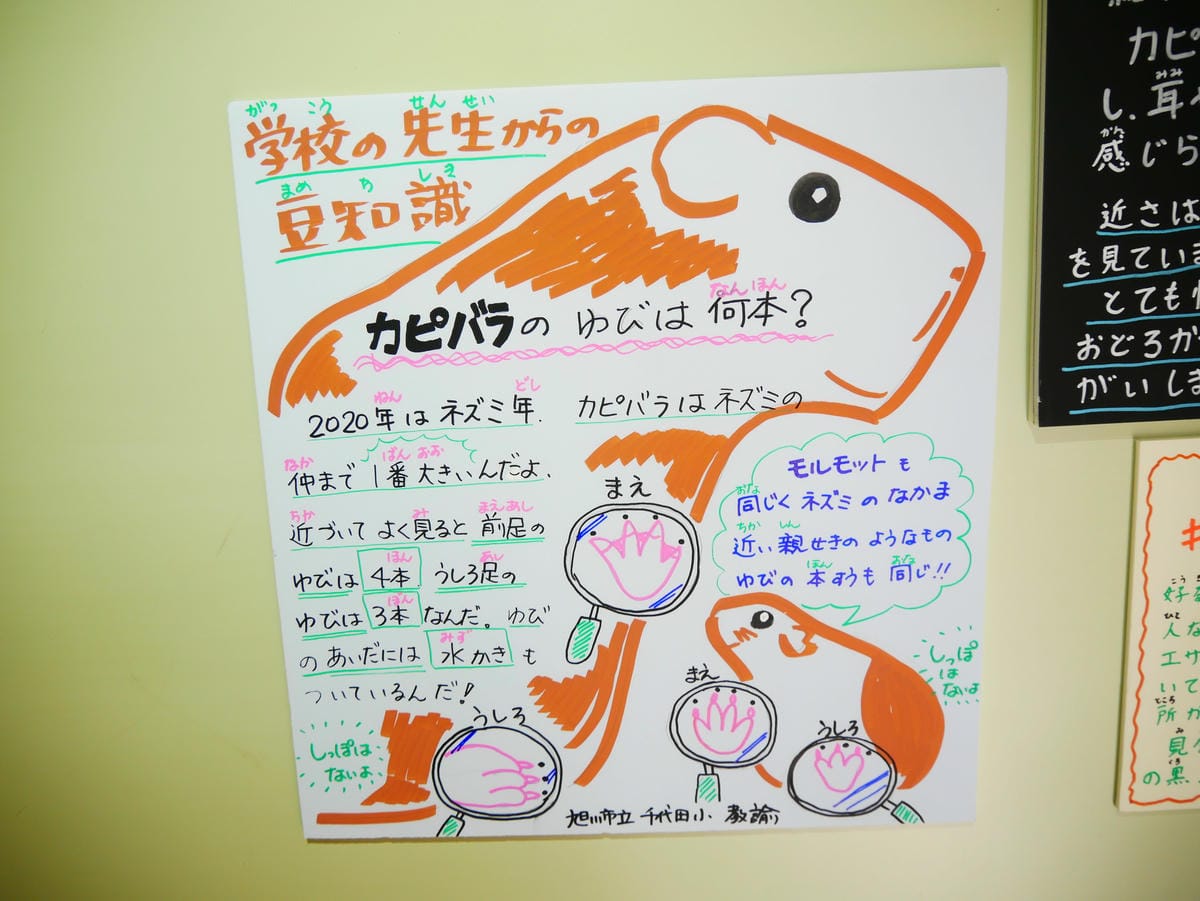 学校の先生からの
豆知識
カピバラの ゆびは 何本?
2020年は ネズミ年. カピバラはネズミの
仲まで 1番大きいんだよ、
近づいて よく見ると 前足の
ゆびは 4本 うしろ足の
ゆびは 3本 なんだ。ゆび
の あいだには 水かき も
ついているんだ!
しっぽは
ないよ
まえ
うしろ
モルモット も
同じく ネズミ の なかま
近い 親せきの ようなもの
ゆびの 本すうも 同じ!!
しっぽ
は
ないよ
まえ
うしろ
旭川市立 千代田小 教諭
カピ
し、耳
感じら
近さは
を見ていま
とても
おどろか
がいしま
好
人な
エサ
いて
所が
見
の黒